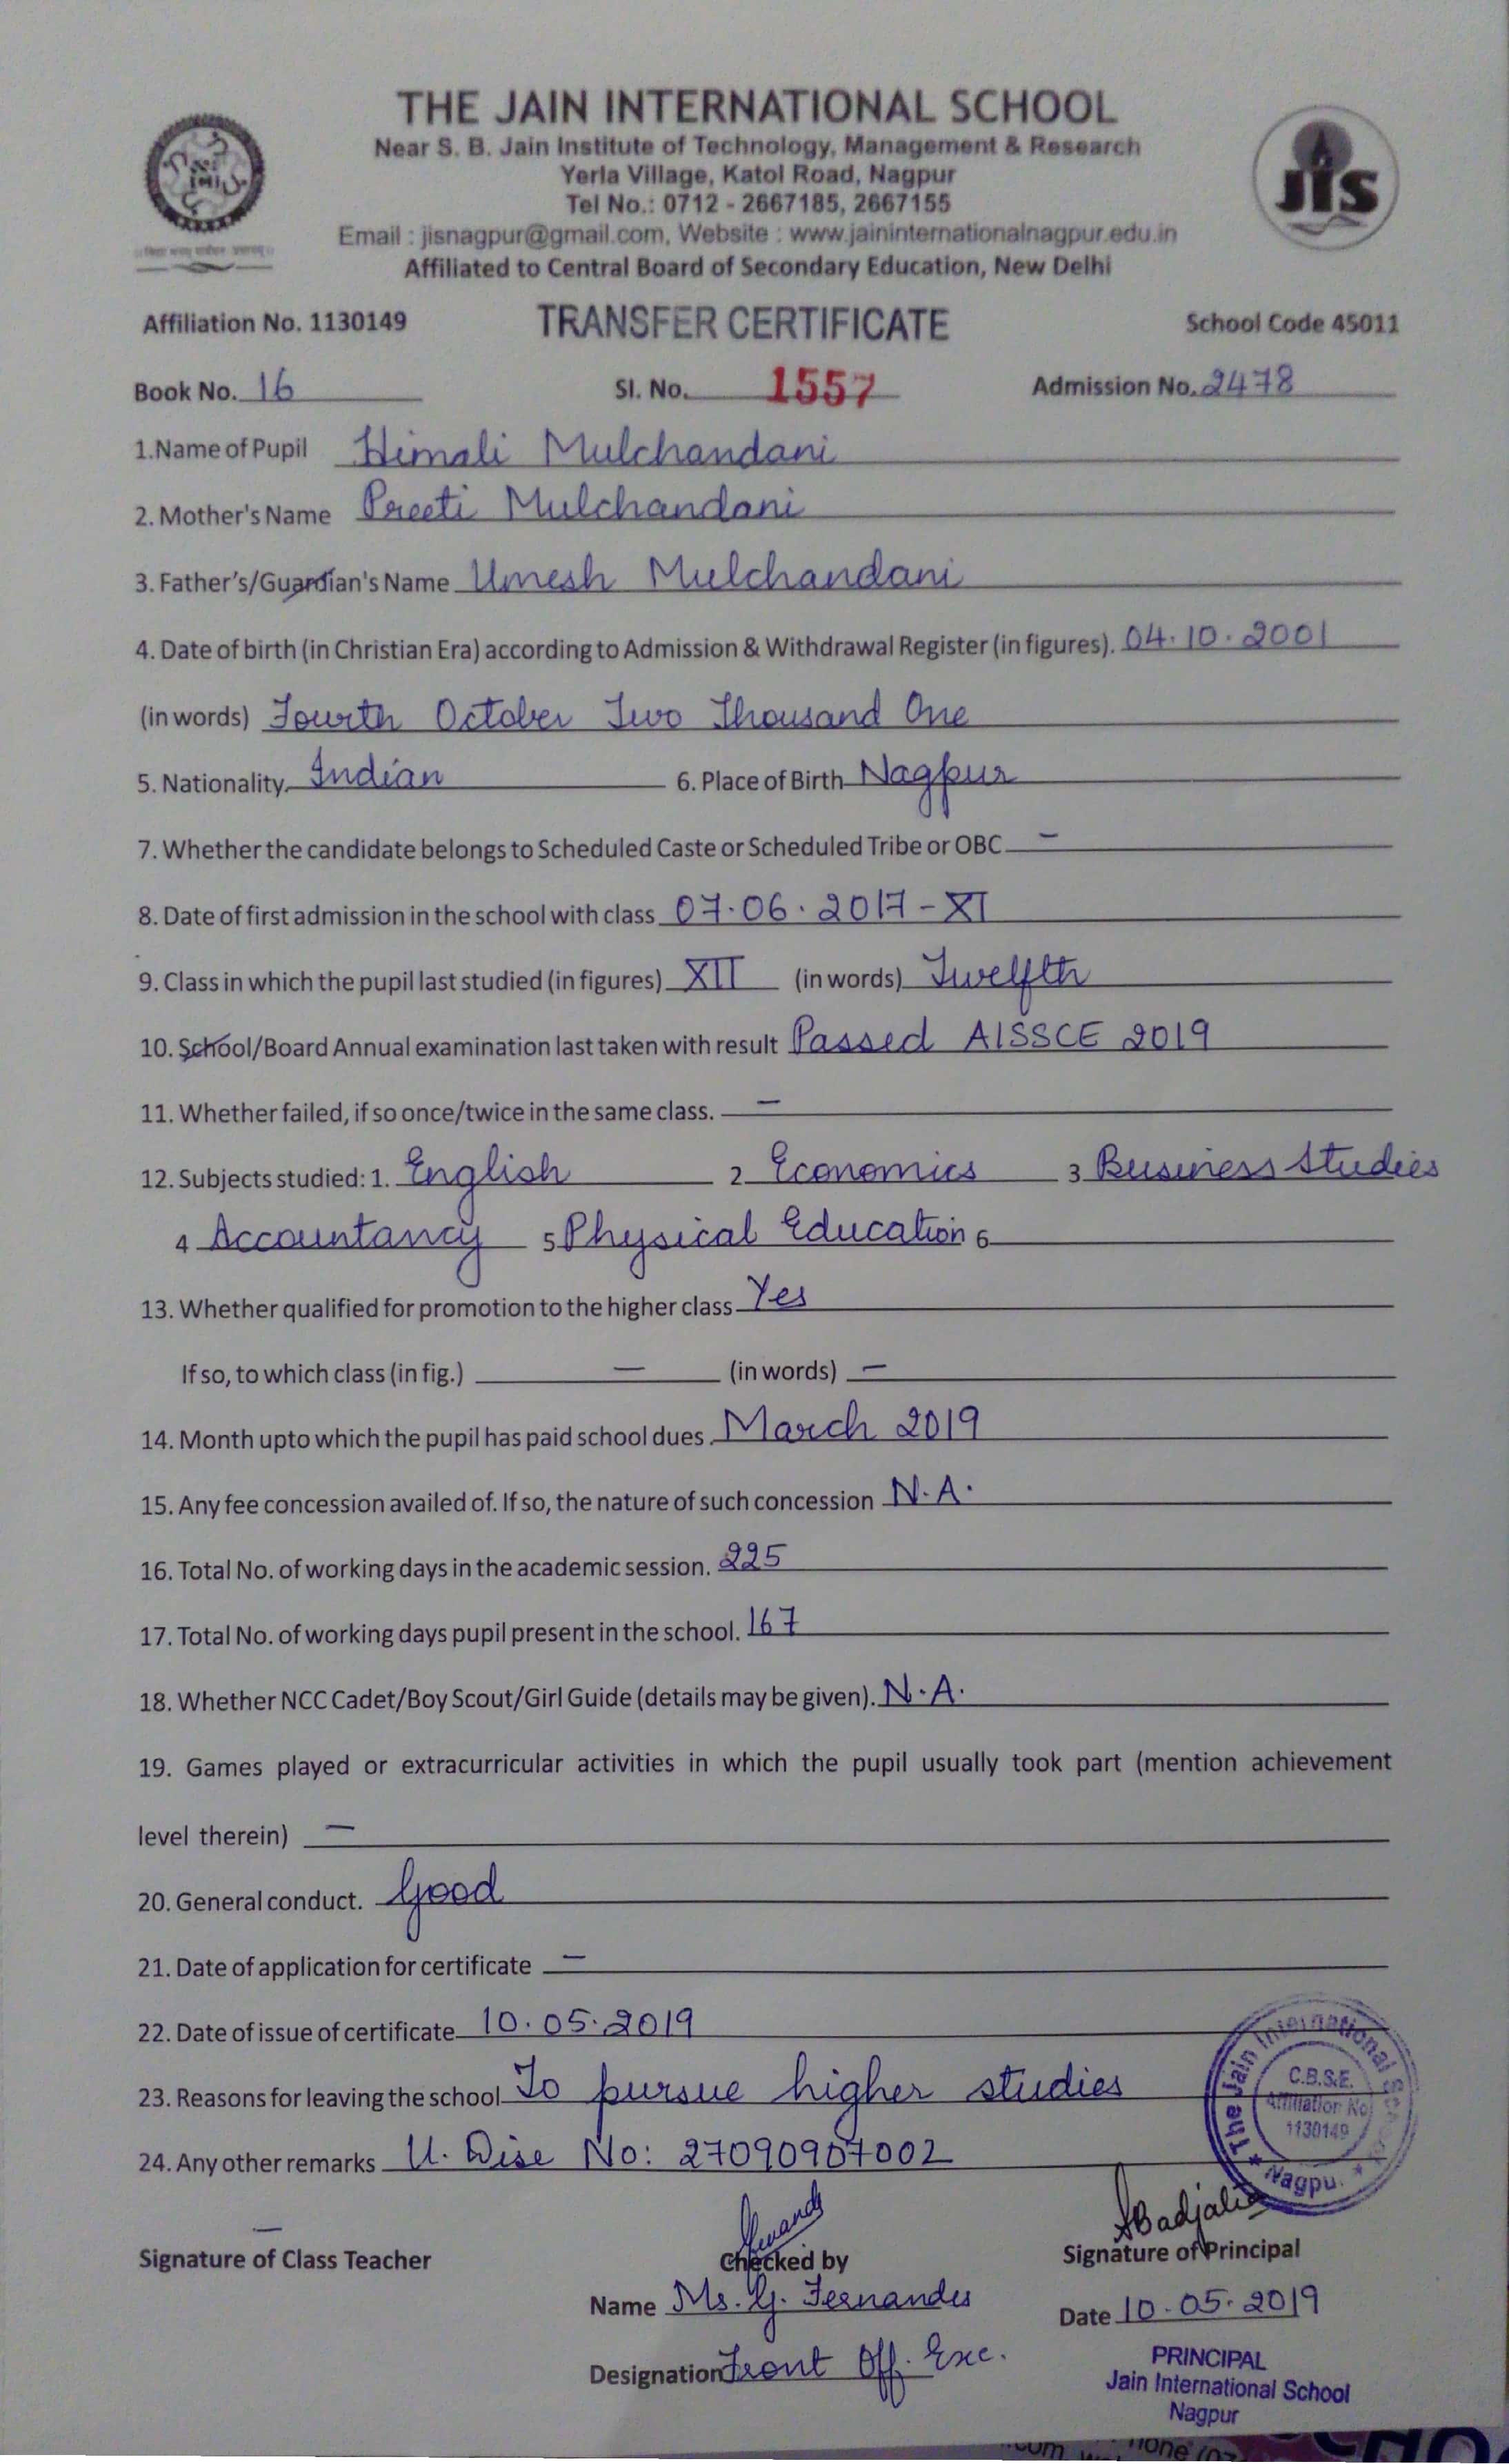 THE JAIN INTERNATIONAL SCHOOL
Near S. B. Jain Institute of Technology, Management & Research
Yerla Village, Katol Road, Nagpur
Tel No.: 0712 - 2667185, 2667155
Email : jisnagpur@gmail.com, Website : www.jaininternationalnagpur.edu.in
Affiliated to Central Board of Secondary Education, New Delhi
JIS
Affiliation No. 1130149 TRANSFER CERTIFICATE School Code 45011
Book No. 16 Sl. No. 1557 Admission No. 2478
1.Name of Pupil Himali Mulchandani
2. Mother's Name Preeti Mulchandani
3. Father's/Guardian's Name Umesh Mulchandani
4. Date of birth (in Christian Era) according to Admission & Withdrawal Register (in figures). 04.10.2001
(in words) Fourth October Two Thousand One
5. Nationality. Indian 6. Place of Birth Nagpur
7. Whether the candidate belongs to Scheduled Caste or Scheduled Tribe or OBC –
8. Date of first admission in the school with class 07.06.2017 - XI
9. Class in which the pupil last studied (in figures) XII (in words) Twelfth
10. School/Board Annual examination last taken with result Passed AISSCE 2019
11. Whether failed, if so once/twice in the same class. –
12. Subjects studied: 1. English 2 Economics 3 Business Studies
4 Accountancy 5 Physical Education 6
13. Whether qualified for promotion to the higher class Yes
If so, to which class (in fig.) – (in words) –
14. Month upto which the pupil has paid school dues. March 2019
15. Any fee concession availed of. If so, the nature of such concession N.A.
16. Total No. of working days in the academic session. 225
17. Total No. of working days pupil present in the school. 167
18. Whether NCC Cadet/Boy Scout/Girl Guide (details may be given). N.A.
19. Games played or extracurricular activities in which the pupil usually took part (mention achievement
level therein) –
20. General conduct. Good
21. Date of application for certificate –
22. Date of issue of certificate 10.05.2019
23. Reasons for leaving the school To pursue higher studies
24. Any other remarks U. Dise No: 27090907002
The Jain International
C.B.S.E.
Affiliation No
1130149
Nagpu
–
Signature of Class Teacher Checked by Signature of Principal
Name Ms. G. Fernandes Date 10.05.2019
Designation Front Off. Exc.
PRINCIPAL
Jain International School
Nagpur